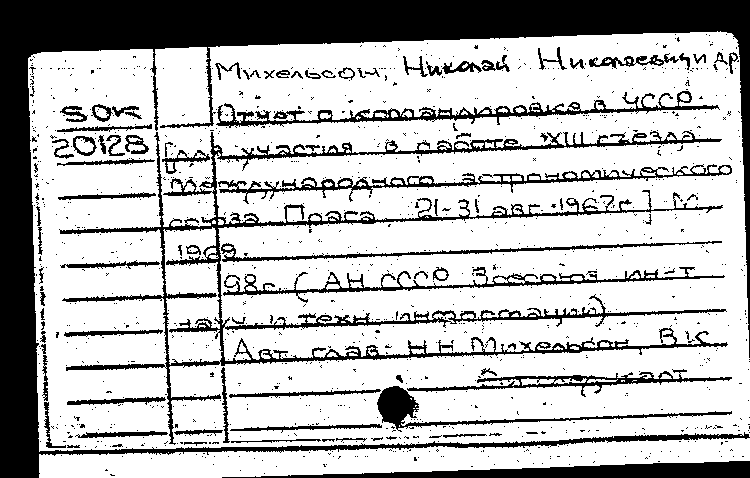 Михельсон, Николай Николаевич и др
SOK Отчет о командировке в ЧССР
20128 [для участия в работе XIII съезда
Международного астрономического
союза Прага, 21-31 авг. 1967г.] М.,
1969.
98с. (АН СССР Всесоюз ин-т
науч и техн. информации)
Авт. глав: Н Н Михельсон, В К
след. карт